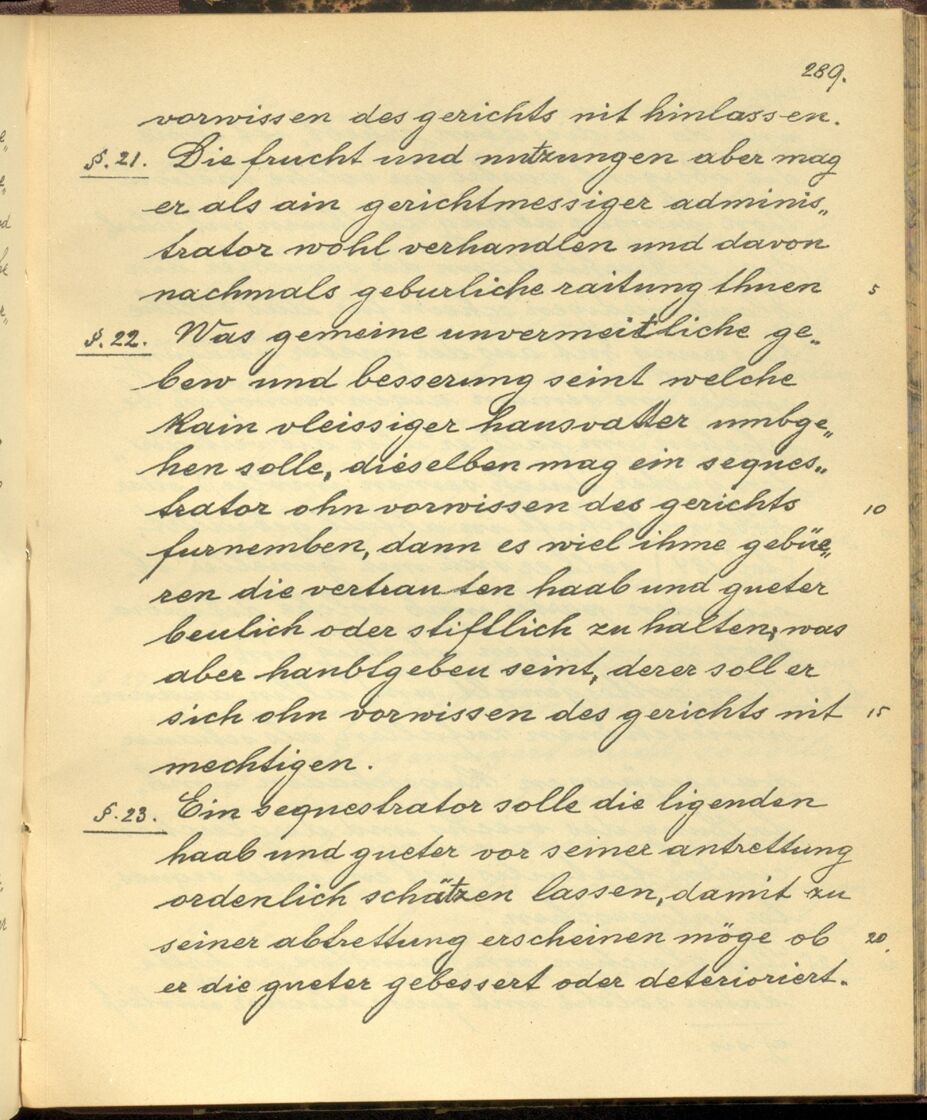 289.
vorwissen des gerichts nit hinlassen.
§. 21. Die frucht und nutzungen aber mag
er als ain gerichtmessiger adminis„
trator wohl verhandlen und davon
nachmals geburliche raitung thuen 5
§. 22. Was gemeine unvermeitliche ge„
bew und besserung seint welche
kain vleissiger hausvatter umbge„
hen solle, dieselben mag ein seques„
trator ohn vorwissen des gerichts 10
furnemben, dann es wiel ihme gebüe„
ren die vertrauten haab und gueter
beulich oder stiftlich zu halten, was
aber haubtgebeu seint, derer soll er
sich ohn vorwissen des gerichts nit 15
mechtigen.
§. 23. Ein sequestrator solle die ligenden
haab und gueter vor seiner antrettung
ordenlich schätzen lassen, damit zu
seiner abtrettung erscheinen möge ob 20.
er die gueter gebessert oder deterioriert.